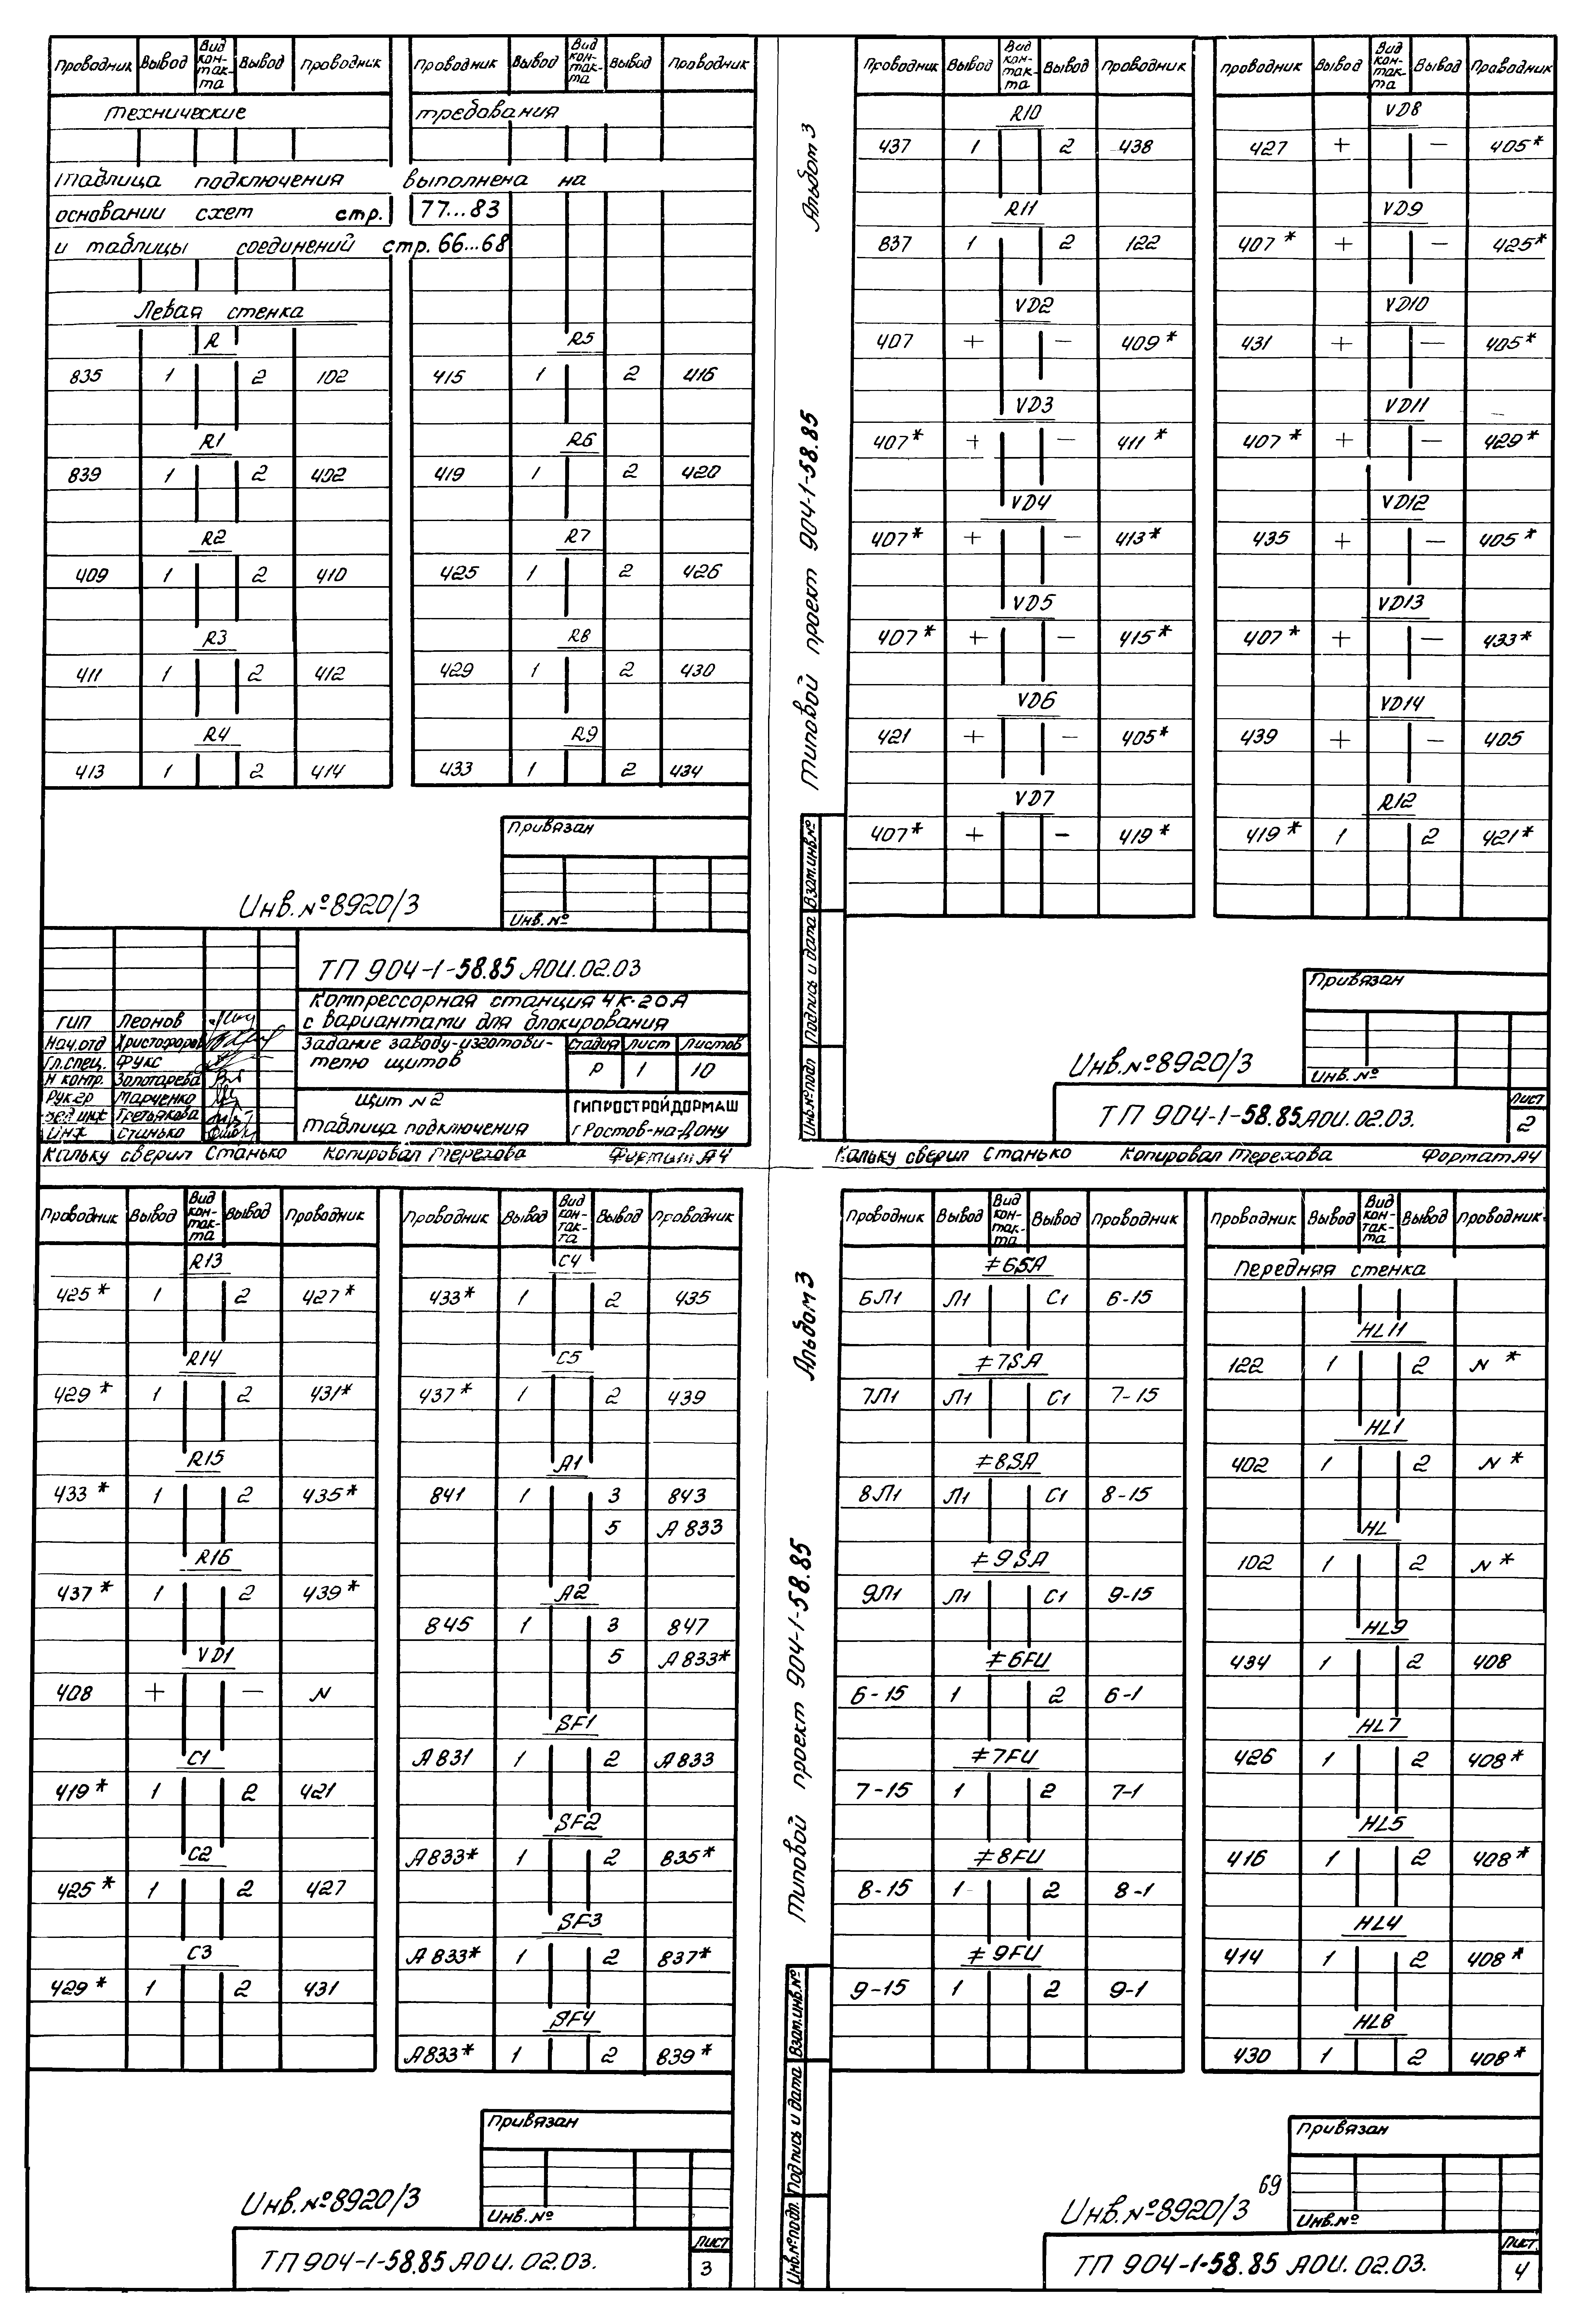 Проводник Вывод Вид кон-так-та Вывод Проводник
Технические
Таблица подключения
основании схем стр.
и таблицы соединений
Левая стенка
R
835 1 2 102
R1
839 1 2 402
R2
409 1 2 410
R3
411 1 2 412
R4
413 1 2 414
Проводник Вывод Вид кон-так-та Вывод Проводник
требования
выполнена на
77...83
стр. 66...68
R5
415 1 2 416
R6
419 1 2 420
R7
425 1 2 426
R8
429 1 2 430
R9
433 1 2 434
Привязан
Инв. №
Инв. №8920/3
ТП 904-1-58.85 АОИ.02.03
Компрессорная станция 4К-20А
с вариантами для блокирования
ГИП Леонов
Нач.отд Христофоров
Гл.спец. Фукс
Н контр. Золотарева
Рук.гр Марченко
Вед.инж Третьякова
Инж Станько
Задание заводу-изготови-
телю щитов
Стадия Лист Листов
Р 1 10
Щит №2
Таблица подключения
ГИПРОСТРОЙДОРМАШ
г Ростов-на-Дону
Кальку сверил Станько Копировал Терехова Формат А4
Альбом 3
Типовой проект 904-1-58.85
Инв.№подл Подпись и дата Взам.инв.№
Проводник Вывод Вид кон-так-та Вывод Проводник
R10
437 1 2 438
R11
837 1 2 122
VD2
407 + − 409*
VD3
407* + − 411*
VD4
407* + − 413*
VD5
407* + − 415*
VD6
421 + − 405*
VD7
407* + − 419*
Проводник Вывод Вид кон-так-та Вывод Проводник
VD8
427 + − 405*
VD9
407* + − 425*
VD10
431 + − 405*
VD11
407* + − 429*
VD12
435 + − 405*
VD13
407* + − 433*
VD14
439 + − 405
R12
419* 1 2 421*
Привязан
Инв. №
Инв.№8920/3
ТП 904-1-58.85 АОИ.02.03.
Лист
2
Кальку сверил Станько Копировал Терехова Формат А4
Проводник Вывод Вид кон-так-та Вывод Проводник
R13
425* 1 2 427*
R14
429* 1 2 431*
R15
433* 1 2 435*
R16
437* 1 2 439*
VD1
408 + − N
C1
419* 1 2 421
C2
425* 1 2 427
C3
429* 1 2 431
Проводник Вывод Вид кон-так-та Вывод Проводник
C4
433* 1 2 435
C5
437* 1 2 439
A1
841 1 3 843
5 А833
A2
845 1 3 847
5 А833*
SF1
А831 1 2 А833
SF2
А833* 1 2 835*
SF3
А833* 1 2 837*
SF4
А833* 1 2 839*
Привязан
Инв. №
Инв.№8920/3
ТП 904-1-58.85 АОИ.02.03.
Лист
3
Альбом 3
Типовой проект 904-1-58.85
Инв.№подл. Подпись и дата Взам.инв.№
Проводник Вывод Вид кон-так-та Вывод Проводник
≠6SA
6Л1 Л1 С1 6-15
≠7SA
7Л1 Л1 С1 7-15
≠8SA
8Л1 Л1 С1 8-15
≠9SA
9Л1 Л1 С1 9-15
≠6FU
6-15 1 2 6-1
≠7FU
7-15 1 2 7-1
≠8FU
8-15 1 2 8-1
≠9FU
9-15 1 2 9-1
Проводник Вывод Вид кон-так-та Вывод Проводник
Передняя стенка
HL11
122 1 2 N*
HL1
402 1 2 N*
HL
102 1 2 N*
HL9
434 1 2 408
HL7
426 1 2 408*
HL5
416 1 2 408*
HL4
414 1 2 408*
HL8
430 1 2 408*
Привязан
Инв.№
69
Инв.№8920/3
ТП 904-1-58.85 АОИ.02.03.
Лист
4